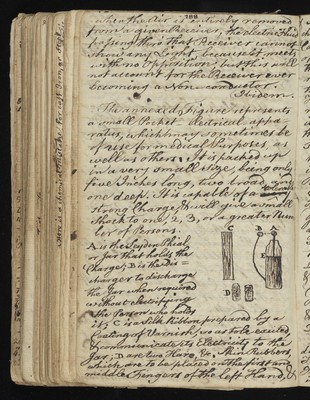 when the Air is entirely removed
from a given Receiver, the electric fluid
passing thro' that Receiver cannot
shew any Light, because it meets
with no Opposition; but this will
not account for the Receiver ever
becoming a Non-conductor.
Ibidem.
The annexed Figure represents
a small Pocket electrical appa-
ratus, which may sometimes be
of use for medical Purposes, as
well as others. It is packed up
in a very small size, being only
five Inches long, two broad, and
one deep. It is capable of a
strong Charge, & will give a small
Shock to one, 2, 3, or a greater Num
ber of Persons.
A is the Leyden Phial
or Jar that holds the
Charge; B is the Dis-
charger to discharge
the Jar when required
without electrifying
the Person who holds
it; C is a Silk Ribbon prepared by a
Coating of Varnish, so as to be excited
& communicate its Electricity to the
Jar; D are two Hare, &c. Skin Rubbers,
which are to be placed on the first and
middle Fingers of the left Hand, &
C
B
A
D